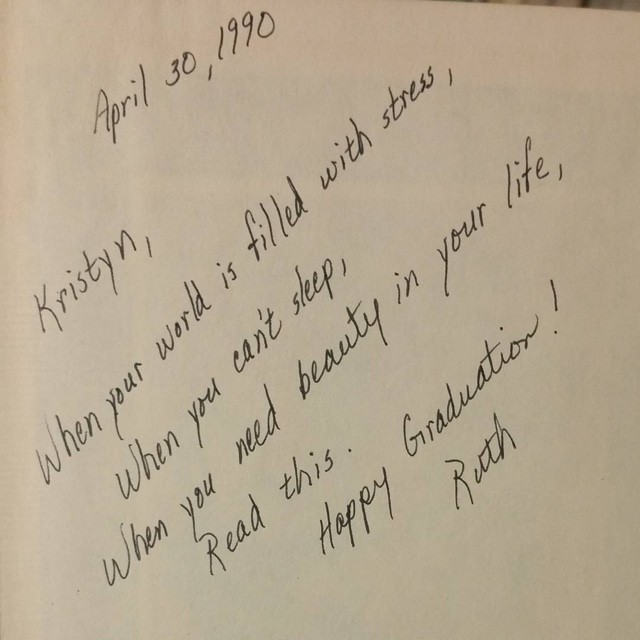 April 30, 1990
Kristyn,
When your world is filled with stress,
When you can't sleep,
When you need beauty in your life,
Read this.
Happy Graduation!
Ruth